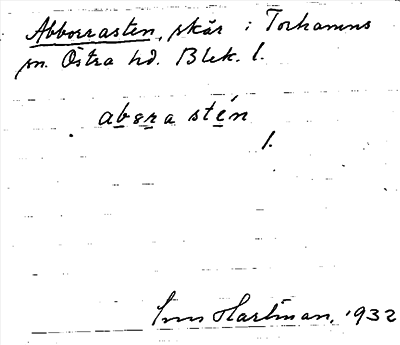 Abborrasten, skär i Torhamns
sn. Östra hd. Blek. l.
abɵra stén
l.
Hartman, 1932